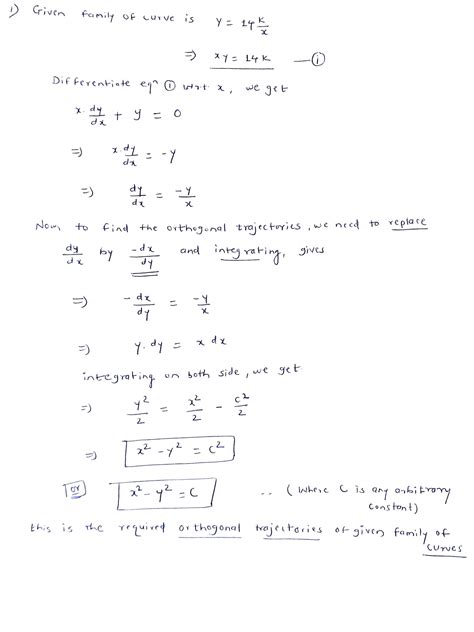 1) Given family of curve is y = 14 k/x
⇒ xy = 14k —①
Differentiate eqⁿ ① w.r.t x, we get
x. dy/dx + y = 0
⇒ x. dy/dx = -y
⇒ dy/dx = -y/x
Now, to find the orthogonal trajectories, we need to replace
dy/dx by -dx/dy and integrating, gives
⇒ -dx/dy = -y/x
⇒ y.dy = x dx
integrating on both side, we get
⇒ y²/2 = x²/2 - c²/2
⇒ x² - y² = c²
or x² - y² = C .. (where C is any arbitrary
constant)
this is the required orthogonal trajectories of given family of
curves